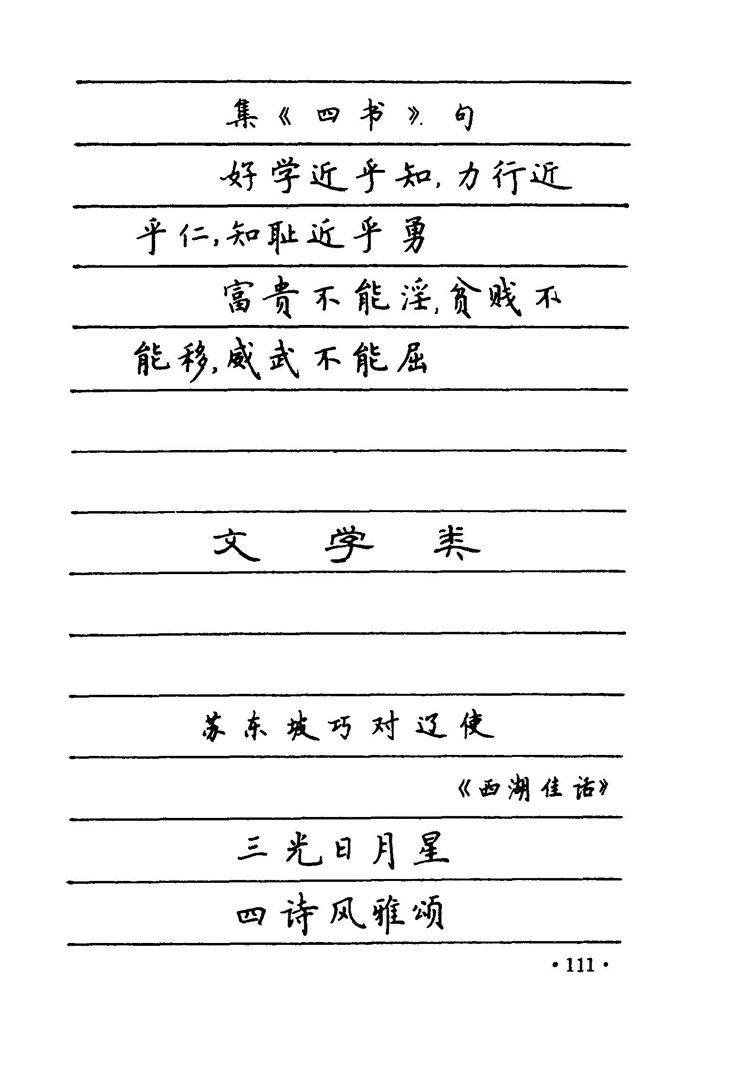 集《四书》句
好学近乎知,力行近
乎仁,知耻近乎勇
富贵不能淫,贫贱不
能移,威武不能屈
文学类
苏东坡巧对辽使
《西湖佳话》
三光日月星
四诗风雅颂
·111·